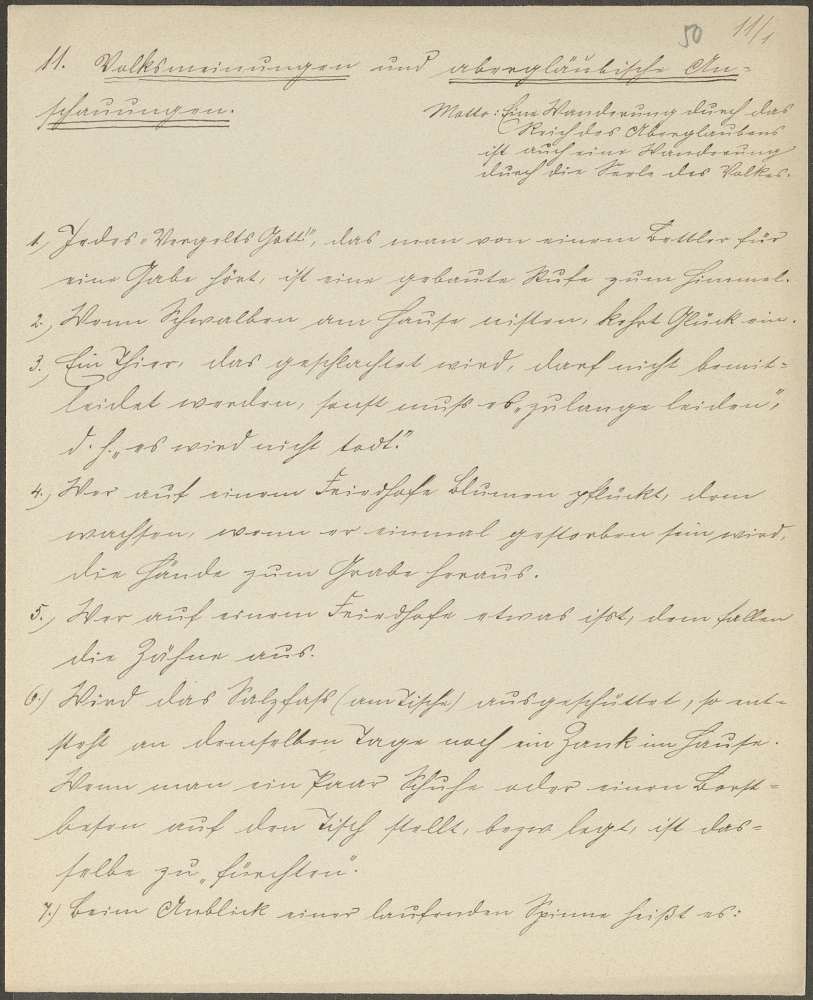 50 11/1
11. Volksmeinungen und abergläubische An-
schauungen.
Motto: Eine Wanderung durch das
Reich des Aberglaubens
ist auch eine Wanderung
durch die Seele des Volkes.
1., Jedes „Vergelts Gott!", das man von einem Bettler für
eine Gabe hört, ist eine gebaute Stufe zum Himmel.
2., Wenn Schwalben am Hause nisten, kehrt Glück ein.
3., Ein Thier, das geschlachtet wird, darf nicht bemit-
leidet werden, sonst muß es „zulange leiden",
d. h. „es wird nicht todt."
4., Wer auf einem Friedhofe Blumen pflückt, dem
wachsen, wenn er einmal gestorben sein wird,
die Hände zum Grabe heraus.
5., Wer auf einem Friedhofe etwas ißt, dem fallen
die Zähne aus.
6.) Wird das Salzfaß (am Tische) ausgeschüttet, so ent-
steht an demselben Tage noch ein Zank im Hause.
Wenn man ein Paar Schuhe oder einen Borst-
besen auf den Tisch stellt, bezw legt, ist das-
selbe zu „fürchten".
7.) Beim Anblick einer laufenden Spinne heißt es: